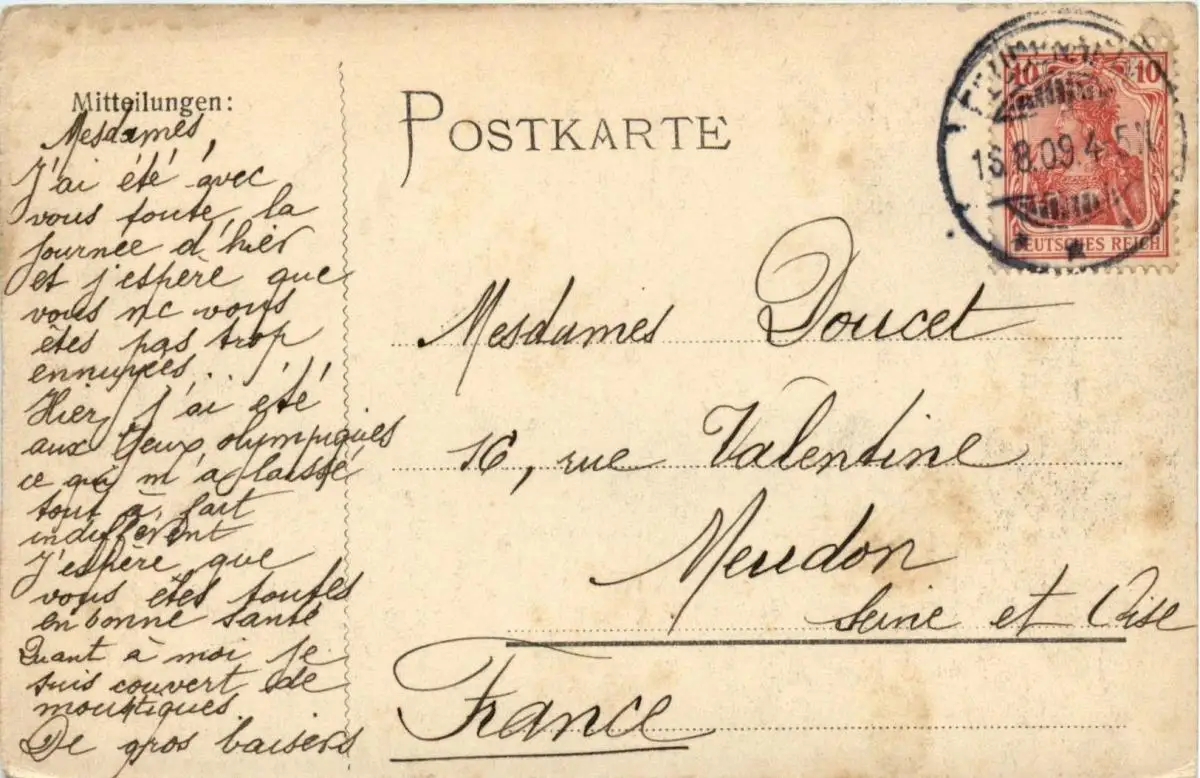 Mitteilungen:
Mesdames,
J'ai été avec
vous toute la
journée d'hier
et j'espère que
vous ne vous
êtes pas trop
ennuyées..
Hier, j'ai été
aux Jeux olympiques
ce qui m'a laissé
tout à fait
indifférent
J'espère que
vous êtes toutes
en bonne santé
Quant à moi je
suis couvert de
moustiques.
De gros baisers
POSTKARTE
10 10
16.8.09.4-5N
DEUTSCHES REICH
Mesdames Doucet
16, rue Valentine
Meudon
Seine et Oise
France